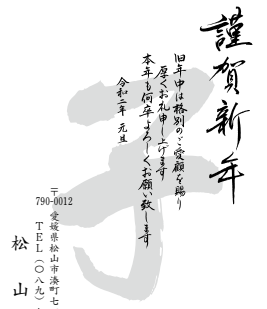 謹賀新年
旧年中は格別のご愛顧を賜り
厚くお礼申し上げます
本年も何卒よろしくお願い致します
令和二年 元旦
子
〒790-0012
愛媛県松山市湊町七
TEL(〇八九)
松山